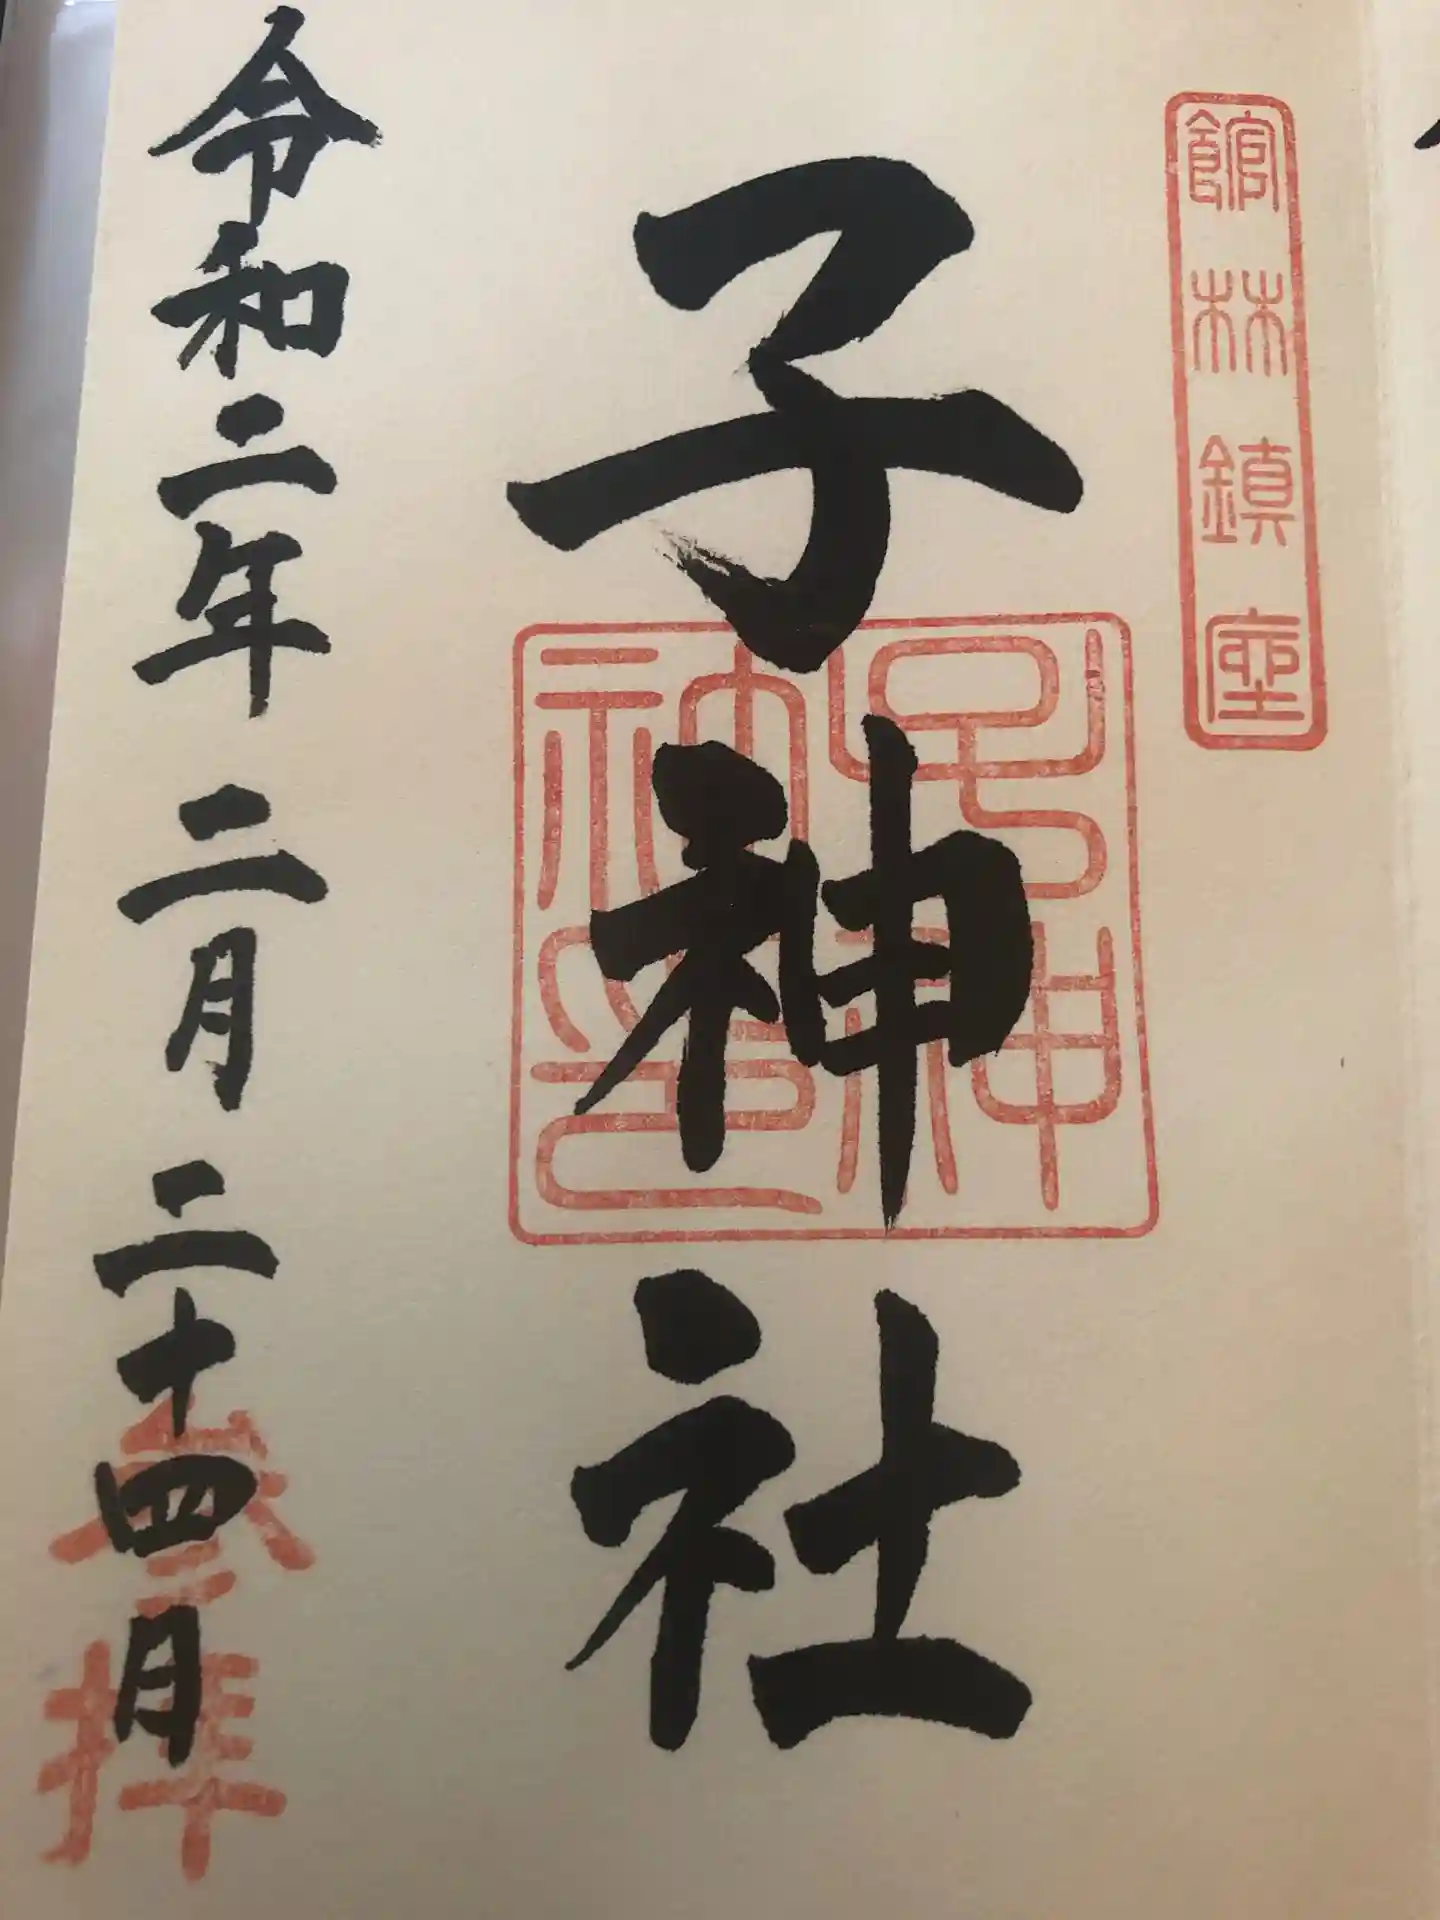 館林鎮座
子神社
子神
社印
令和二年二月二十四日
参拝